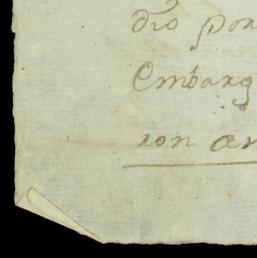 dio por
Embarg
ron an